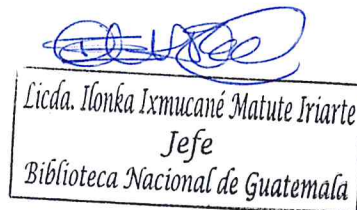 Licda. Ilonka Ixmucané Matute Iriarte
Jefe
Biblioteca Nacional de Guatemala